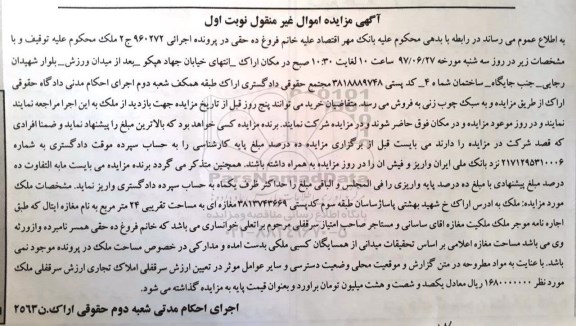 آگهی مزایده اموال غیر منقول نوبت اول
به اطلاع عموم می رساند در رابطه با بدهی محکوم علیه بانک مهر اقتصاد علیه خانم فروغ ده حقی در پرونده اجرائی ۹۶۰۲۷۲ ج۲ ملک محکوم علیه توقیف و با
مشخصات زیر در روز سه شنبه مورخه ۹۷/۰۶/۲۷ ساعت ۱۰ لغایت ۱۰:۳۰ صبح در مکان اراک _انتهای خیابان جهاد هپکو _بعد از میدان ورزش_ بلوار شهیدان
رجایی_ جنب جایگاه_ ساختمان شماه ۴_ کد پستی ۳۸۱۸۸۸۹۷۴۸ مجتمع حقوقی دادگستری اراک طبقه همکف شعبه دوم اجرای احکام مدنی دادگاه حقوقی
اراک از طریق مزایده و به سبک چوب زنی به فروش می رسد. متقاضیان خرید می توانند پنج روز قبل از تاریخ مزایده جهت بازدید از ملک به این اجرا مراجعه نمایند
نمایند و در روز موعد مزایده و در مکان فوق حاضر شوند و در مزایده شرکت نمایند. برنده مزایده کسی خواهد بود که بالاترین مبلغ را پیشنهاد نماید و ضمنا افرادی
که قصد شرکت در مزایده را دارند می بایست قبل از برگزاری مزایده ده درصد مبلغ پایه کارشناسی را به حساب سپرده موقت دادگستری به شماره
۲۱۷۱۲۹۵۳۱۰۰۰۶ نزد بانک ملی ایران واریز و فیش ان را در روز مزایده به همراه داشته باشند. همچنین متذکر می گردد برنده مزایده می بایست مابه التفاوت ده
درصد مبلغ پیشنهادی با مبلغ ده درصد پایه واریزی را فی المجلس و الباقی مبلغ را حداکثر ظرف یکماه به حساب سپرده دادگستری واریز نماید. مشخصات ملک
مورد مزایده: ملک به ادرس اراک خ شهید بهشتی پاساژ ساسان طبقه سوم کدپستی ۳۸۱۳۷۴۳۶۶۹ مغازه ای به مساحت تقریبی ۲۴ متر مربع به نام مغازه ایتال که طبق
اجاره نامه موجر ملک ملکیت مغازه اقای ساسانی و مستاجر صاحب امتیاز سرقفلی مرحوم براتعلی خوانساری می باشد که خانم فروغ ده حقی همسر نامبرده و ازورثه
وی می باشد مساحت مغازه اعلامی بر اساس تحقیقات میدانی از همسایگان کسبی ملکی بدست امده و مدارکی در خصوص مساحت ملک در پرونده موجود نمی
باشد. با عنایت به مواد مطروحه در متن گزارش و موقعیت محلی وضعیت دسترسی و سایر عوامل موثر در تعیین ارزش سرقفلی املاک تجاری ارزش سرقفلی ملک
مورد نظر ۱۶۸۰۰۰۰۰۰۰ ریال معادل یکصد و شصت و هشت میلیون تومان براورد و بعنوان قیمت پایه به مزایده گذاشته می شود.
اجرای احکام مدنی شعبه دوم حقوقی اراک.ن۲۵۶۳